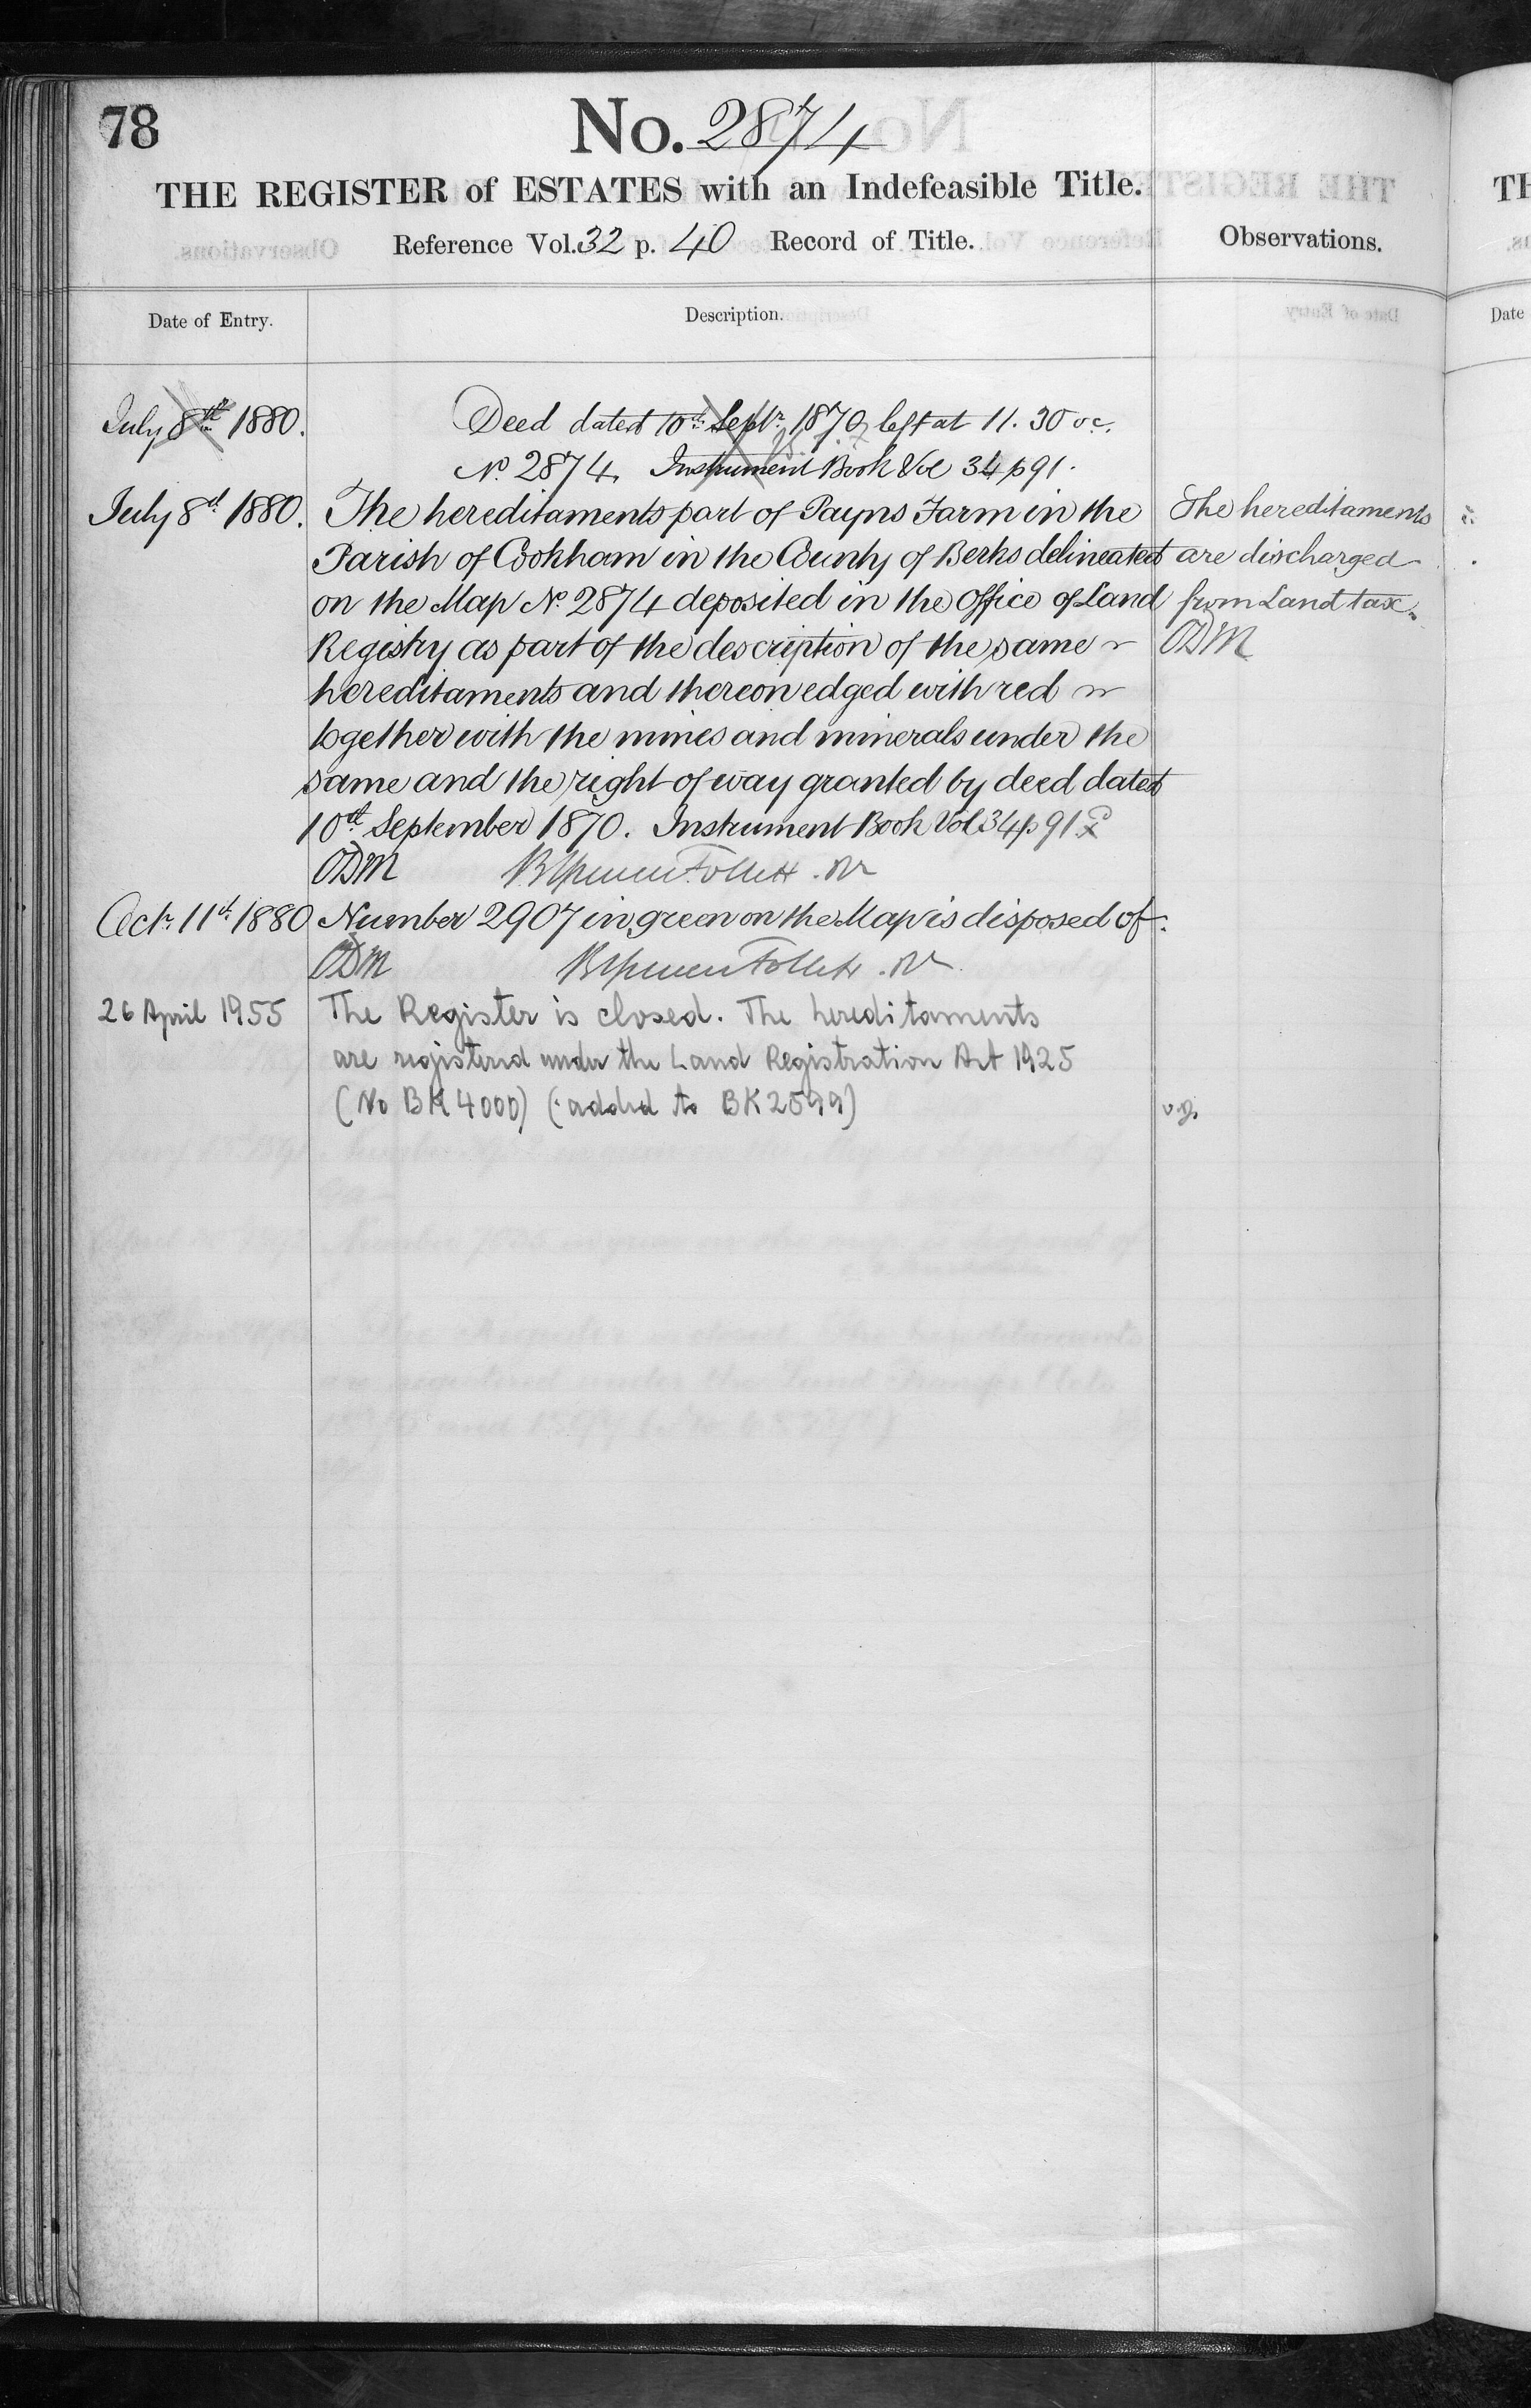 78
No. 2874
THE REGISTER of ESTATES with an Indefeasible Title.
Reference Vol. 32 p. 40 Record of Title.
Observations.
Date of Entry.
Description.
July 8th 1880. Deed dated 10th Septr. 1870 left at 11.30 oc.
No. 2874. Instrument Book Vol 34 p 91.
July 8th 1880. The hereditaments part of Payns Farm in the
Parish of Cookham in the County of Berks delineated
on the Map No. 2874 deposited in the Office of Land
Registry as part of the description of the same
hereditaments and thereon edged with red
together with the mines and minerals under the
same and the right of way granted by deed dated
10th September 1870. Instrument Book Vol 34 p 91
ODM Follett
The hereditaments
are discharged
from Land tax.
ODM
Octr. 11th 1880 Number 2907 in green on the Map is disposed of.
ODM Follett
26 April 1955 The Register is closed. The hereditaments
are registered under the Land Registration Act 1925
(No BK 4000) (added to BK 2599)
TH
Date